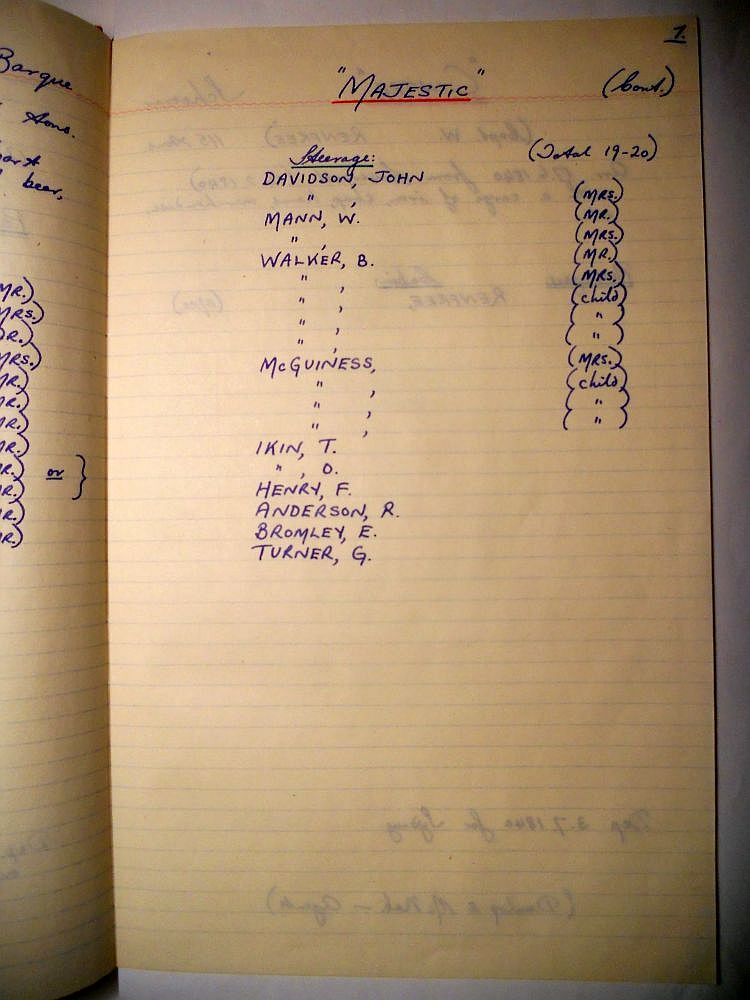 7.
"MAJESTIC" (Cont.)
Steerage: (Total 19-20)
DAVIDSON, JOHN
" , (MRS.)
MANN, W. (MR.)
" , (MRS.)
WALKER, B. (MR.)
" , (MRS.)
" , (child)
" , ( " )
" , ( " )
McGUINESS, (MRS.)
" , (child)
" , ( " )
" , ( " )
IKIN, T.
" , O.
HENRY, F.
ANDERSON, R.
BROMLEY, E.
TURNER, G.
Barque
Sons.
beer,
MR.)
MRS.)
DR.)
MRS.)
MR.)
MR.)
MR.)
MR.)
MR.) or }
MR.)
MR.)
MR.)